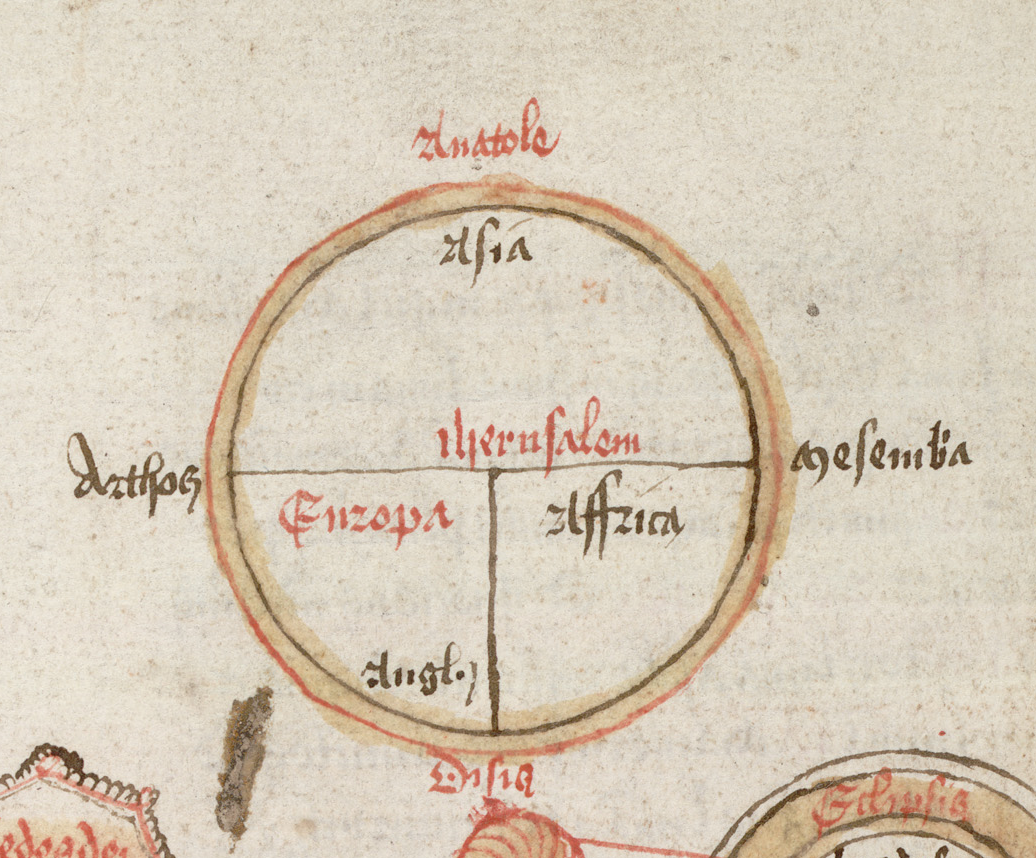 Anatole
Asia
Iherusalem
Arthos
Mesembria
Europa
Affrica
Angl.
Disis
Eclipsis